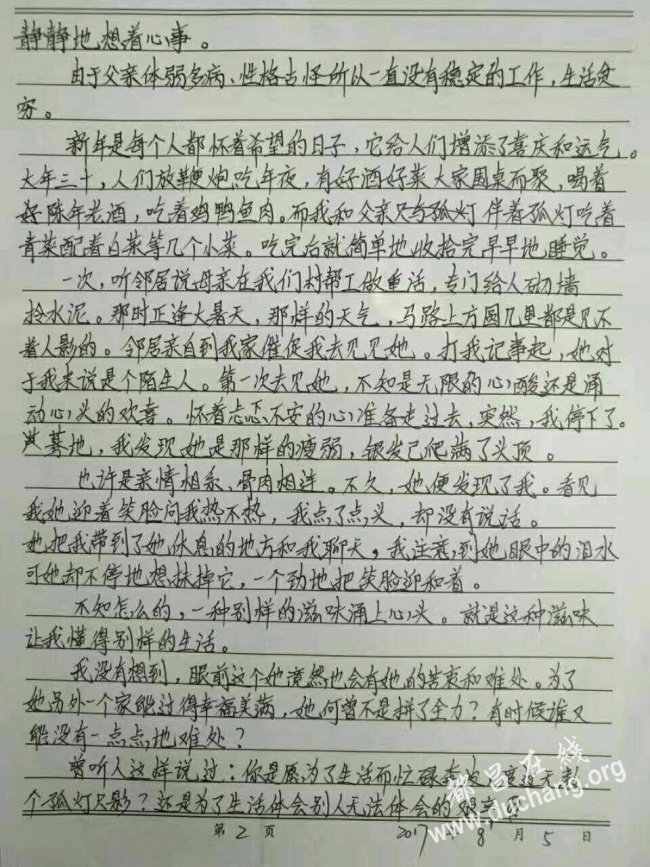 静静地想着心事。
由于父亲体弱多病、性格古怪所以一直没有稳定的工作，生活贫
穷。
新年是每个人都怀着希望的日子，它给人们增添了喜庆和运气。
大年三十，人们放鞭炮吃年夜，有好酒好菜大家围桌而聚，喝着
好陈年老酒，吃着鸡鸭鱼肉。而我和父亲只与孤灯伴着孤灯吃着
青菜配着白菜等几个小菜。吃完后就简单地收拾完早早地睡觉。
一次，听邻居说母亲在我们村帮工做重活，专门给人砌墙
拎水泥。那时正逢大暑天，那样的天气，马路上方圆几里都是见不
着人影的。邻居亲自到我家催促我去见见她。打我记事起，她对
于我来说是个陌生人。第一次去见她，不知是无限的心酸还是涌
动心头的欢喜。怀着忐忑不安的心准备走过去，突然，我停下了。
蓦地，我发现她是那样的瘦弱，银发已爬满了头顶。
也许是亲情相系、骨肉相连。不久，她便发现了我。看见
我她迎着笑脸问我热不热，我点了点头，却没有说话。
她把我带到了她休息的地方和我聊天，我注意到她眼中的泪水
可她却不停地想抹掉它，一个劲地把笑脸迎和着。
不知怎么的，一种别样的滋味涌上心头。就是这种滋味
让我懂得别样的生活。
我没有想到，眼前这个她竟然也会有她的苦衷和难处。为了
她另外一个家能过得幸福美满，她何曾不是拼了全力？有时候谁又
能没有一点点地难处？
曾听人这样说过：你是愿为了生活而忙碌
个孤灯只影？还是为了生活体会别人无法体会的
都昌在线
www.duchang.org
第 2 页 2017 年 8 月 5 日